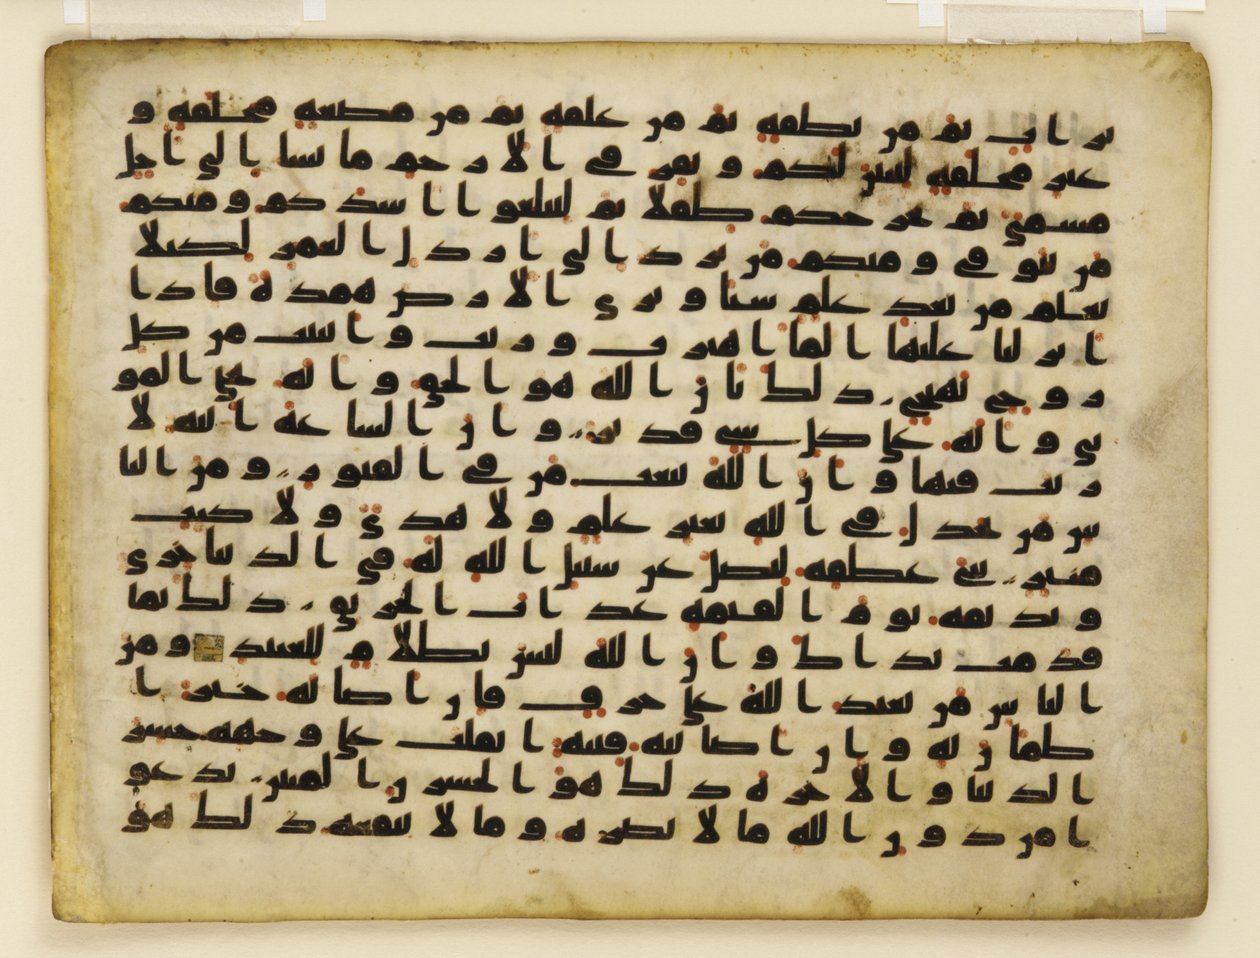 تراب ثم من نطفة ثم من علقة ثم من مضغة مخلقة و
غير مخلقة لنبين لكم ونقر في الارحم ما نشا الى اجل
مسمى ثم نخرجكم طفلا ثم لتبلغوا اشدكم ومنكم
من يتوفى ومنكم من يرد الى ارذل العمر لكيلا
يعلم من بعد علم شيا وترى الارض همدة فاذا
انزلنا عليها الما اهتزت وربت وانبتت من كل
زوج بهيج ذلك بان الله هو الحق وانه يحى المو
تى وانه على كل شى قدير وان الساعة اتية لا
ريب فيها وان الله يبعث من في القبور ومن النا
س من يجدل في الله بغير علم ولا هدى ولا كتب
منير ثنى عطفه ليضل عن سبيل الله له في الدنيا خزى
ونذيقه يوم القيمة عذاب الحريق ذلك بما
قدمت يداك وان الله ليس بظلام للعبيد ومن
الناس من يعبد الله على حرف فان اصابه خير ا
طمان به وان اصابته فتنة انقلب على وجهه خسر
الدنيا والاخرة ذلك هو الخسرن المبين يدعو
ا من دون الله ما لا يضره وما لا ينفعه ذلك هو